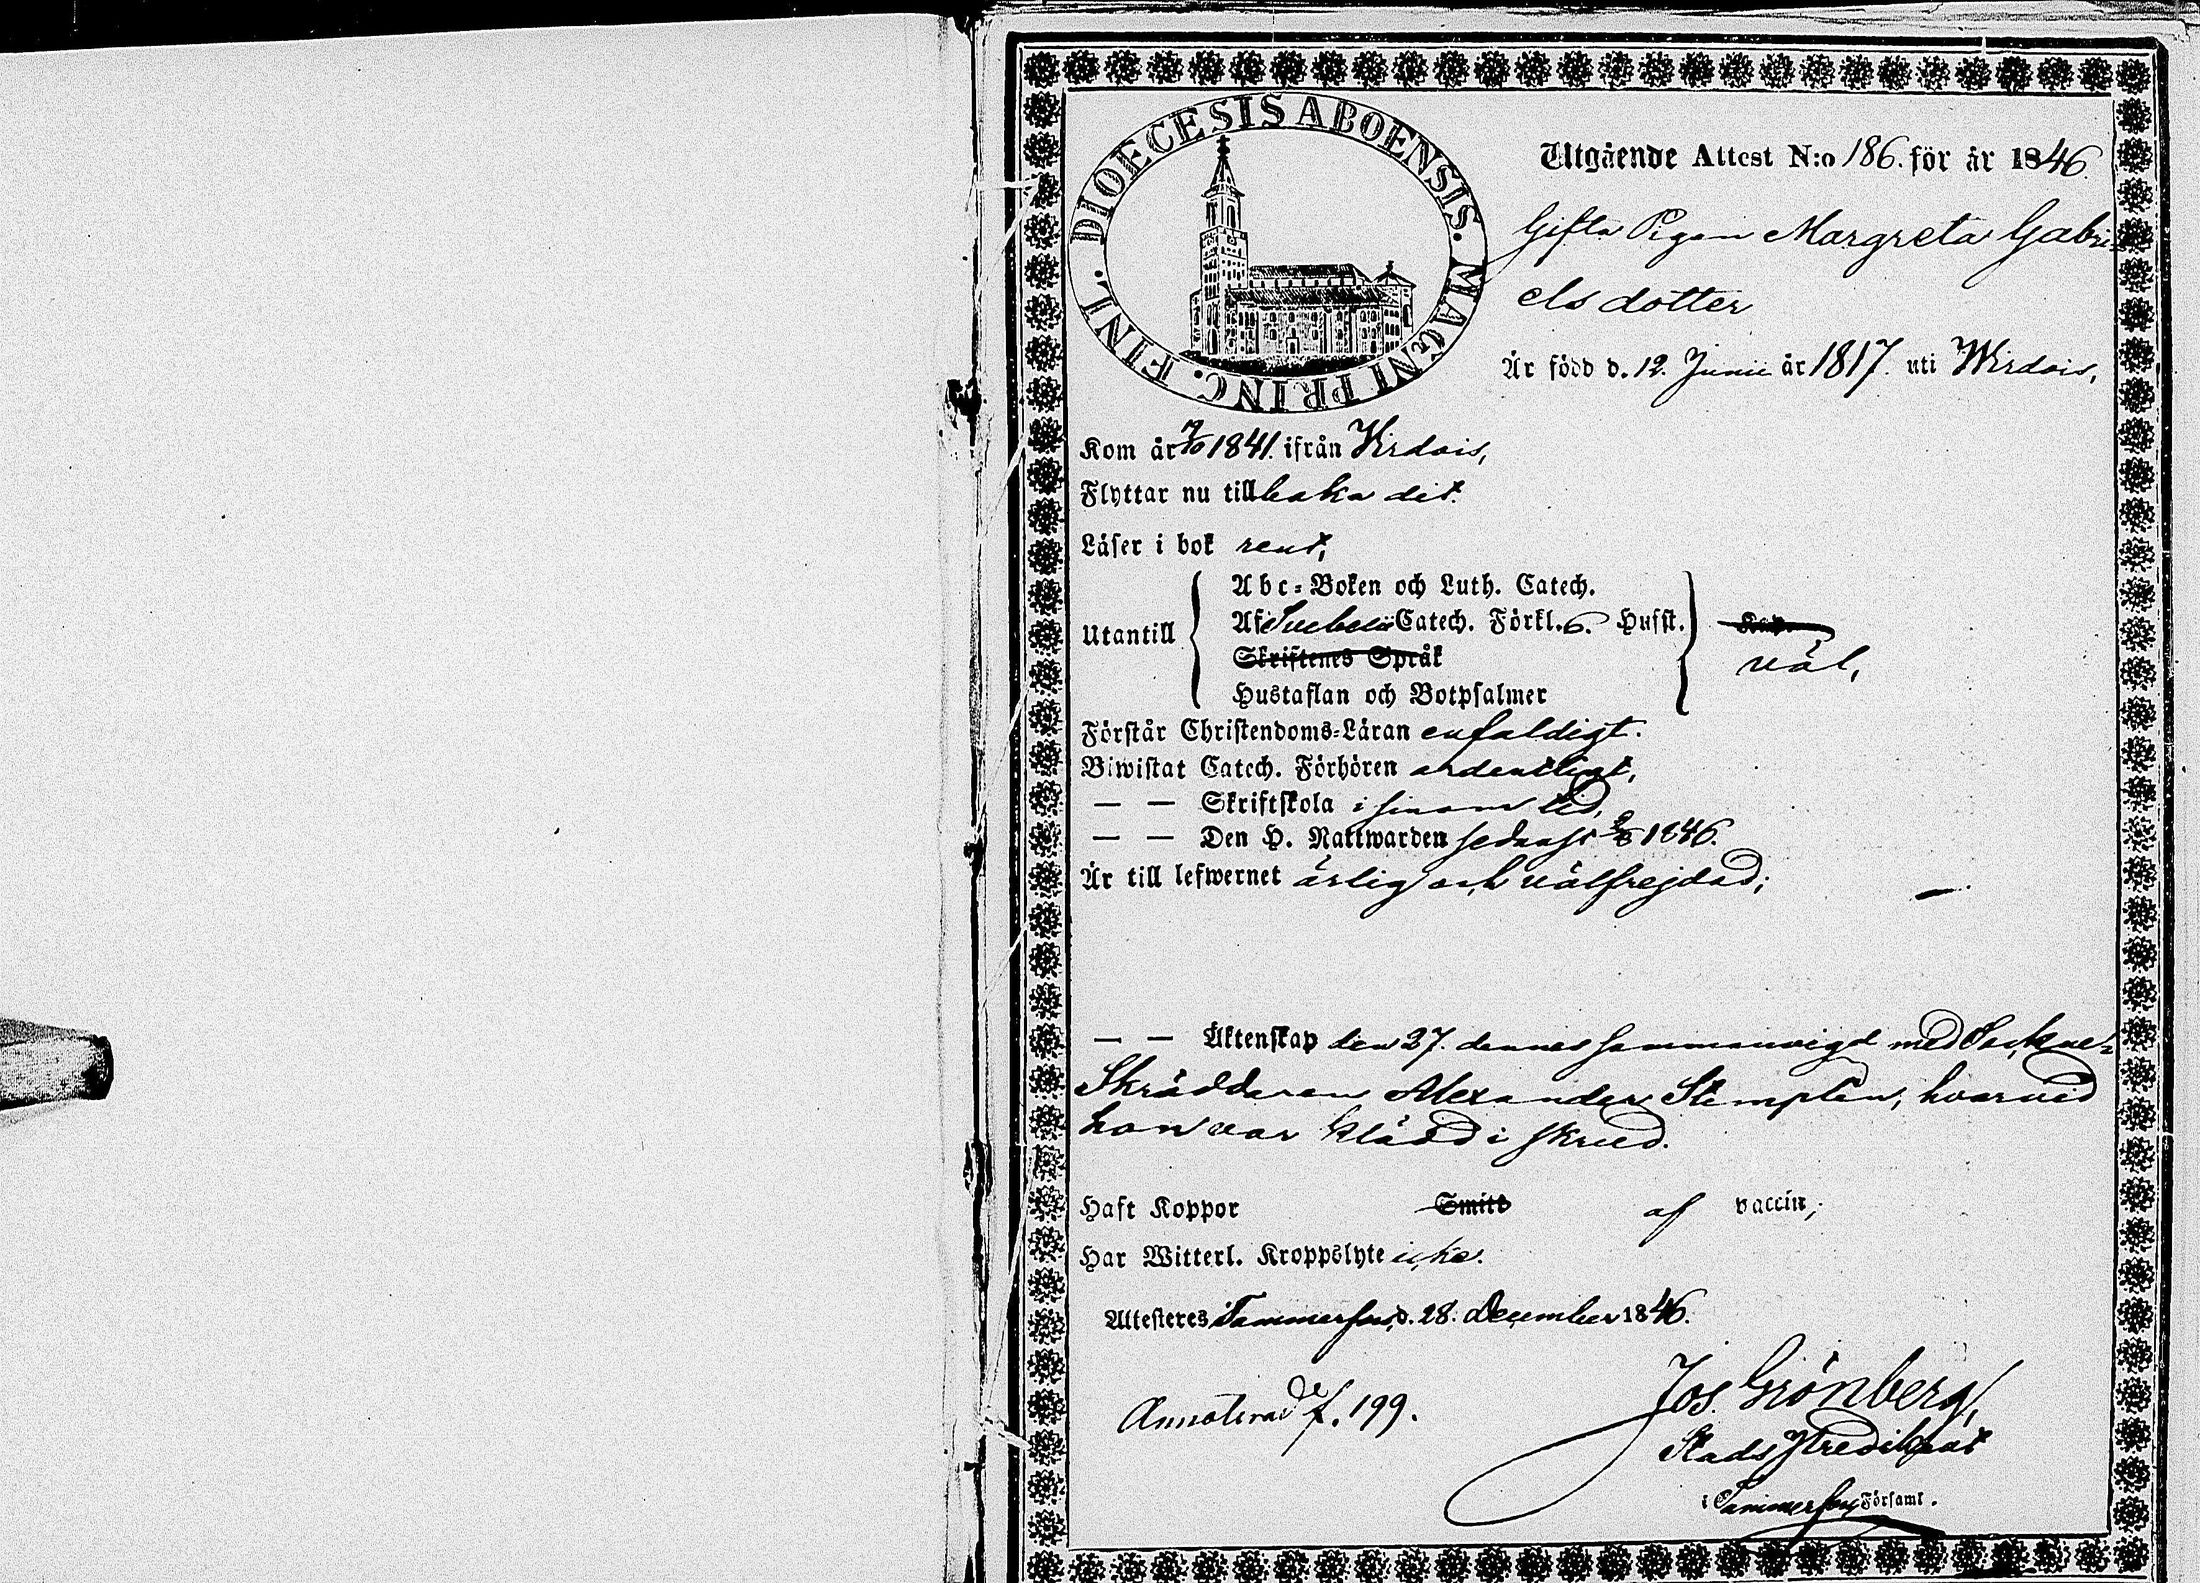 DIOECESIS ABOENSIS. MAGNI PRINC. FINL.
Utgående Attest N:o 186. för år 1846.
Gifta Pigan Margreta Gabri-
elsdotter
Är född d. 12. Junii år 1817. uti Wirdois,
Kom år 7/10 1841. ifrån Virdois,
Flyttar nu tillbaka dit.
Läser i bok rent,
Utantill
Abc-Boken och Luth. Catech.
Af Svebelii Catech. Förkl. 6. Husst.
Skriftenes Språk
Hustaflan och Botpsalmer
väl,
Förstår Christendoms-Läran enfaldigt.
Biwistat Catech. Förhören ordentligt,
— — Skriftskola i sinom tid,
— — Den H. Nattwarden sednast 1846.
Är till lefwernet ärlig och välfrejdad;
— — Äktenskap den 27. dennes sammanvigd med Sockne-
Skräddaren Alexander Stemplin, hvarvid
hon var klädd i skrud.
Haft Koppor Smitt af vaccin,
Har Witterl. Kroppslyte icke.
Attesteres i Tammerfors, d. 28. December 1846.
Annoterad f. 199.
Jos. Grönberg,
Stads Predikant
i Tammerfors Församl.